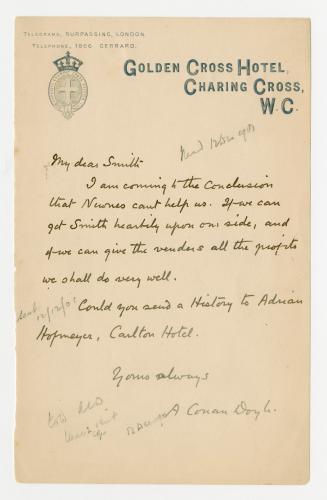 TELEGRAMS, SURPASSING, LONDON.
TELEPHONE, 1866 GERRARD.
GOLDEN CROSS HOTEL,
CHARING CROSS,
W.C.
My dear Smith
I am coming to the conclusion
that Newnes cant help us. If we can
get Smith heartily upon our side, and
if we can give the venders all the profits
we shall do very well.
sent
12/12/01
Could you send a History to Adrian
Hofmeyer, Carlton Hotel.
Yours always
A Conan Doyle.